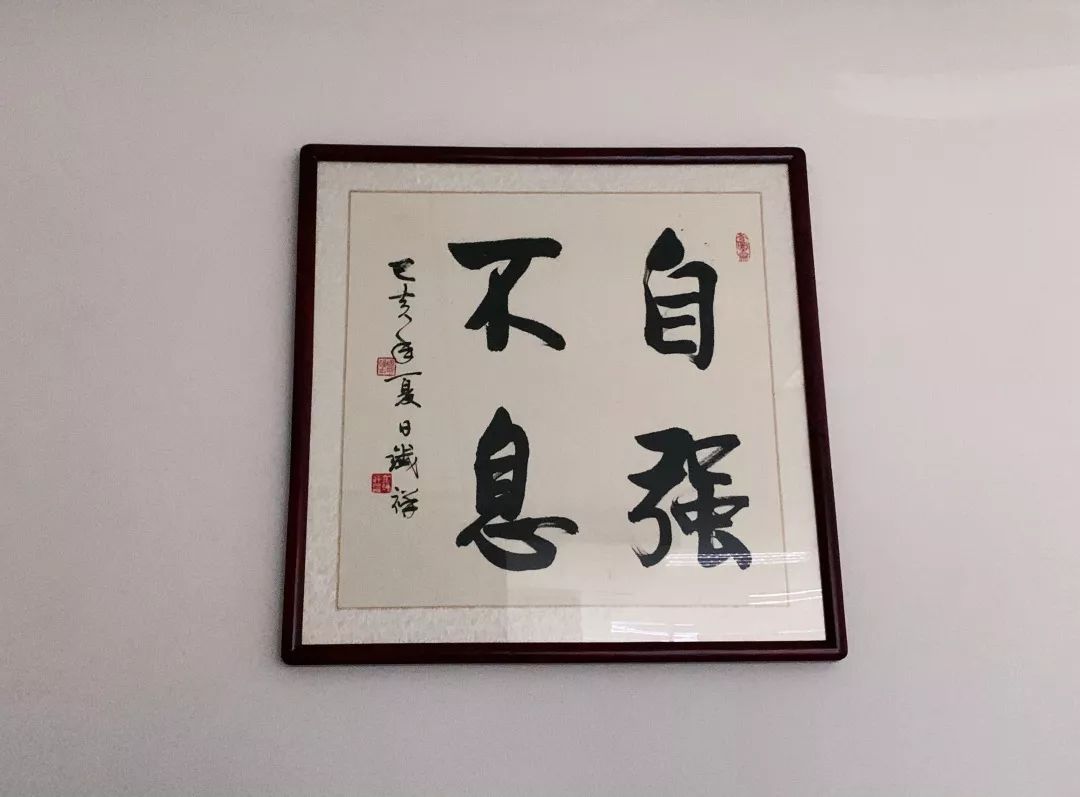 自强
不息
己亥年夏日鐵祥